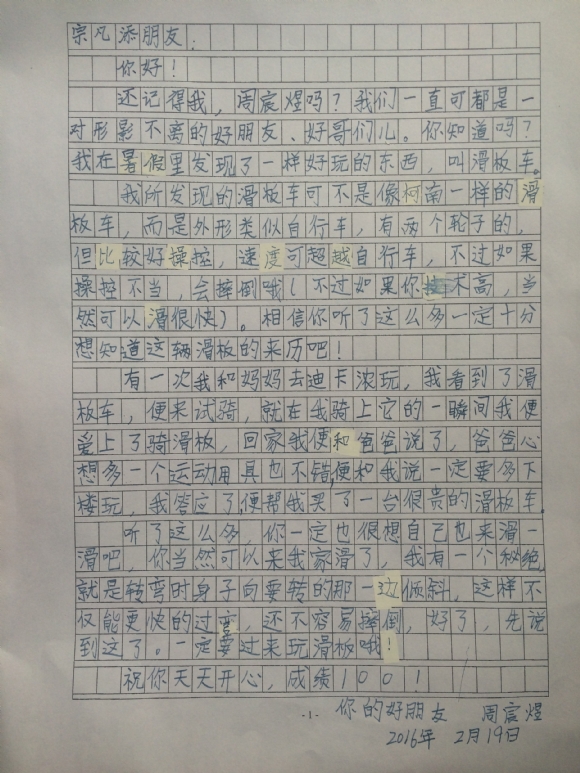 宗凡添朋友：
你好！
还记得我，周宸煜吗？我们一直可都是一
对形影不离的好朋友、好哥们儿。你知道吗？
我在暑假里发现了一样好玩的东西，叫滑板车。
我所发现的滑板车可不是像柯南一样的滑
板车，而是外形类似自行车，有两个轮子的，
但比较好操控，速度可超越自行车，不过如果
操控不当，会摔倒哦（不过如果你技术高，当
然可以滑很快）。相信你听了这么多一定十分
想知道这辆滑板的来历吧！
有一次我和妈妈去迪卡浓玩，我看到了滑
板车，便来试骑，就在我骑上它的一瞬间我便
爱上了骑滑板，回家我便和爸爸说了，爸爸心
想多一个运动用具也不错，便和我说一定要多下
楼玩，我答应了，便帮我买了一台很贵的滑板车。
听了这么多，你一定也很想自己也来滑一
滑吧，你当然可以来我家滑了，我有一个秘绝，
就是转弯时身子向要转的那一边倾斜，这样不
仅能更快的过弯，还不容易摔倒，好了，先说
到这了。一定要过来玩滑板哦！
祝你天天开心，成绩100！
你的好朋友 周宸煜
-1-
2016年 2月19日